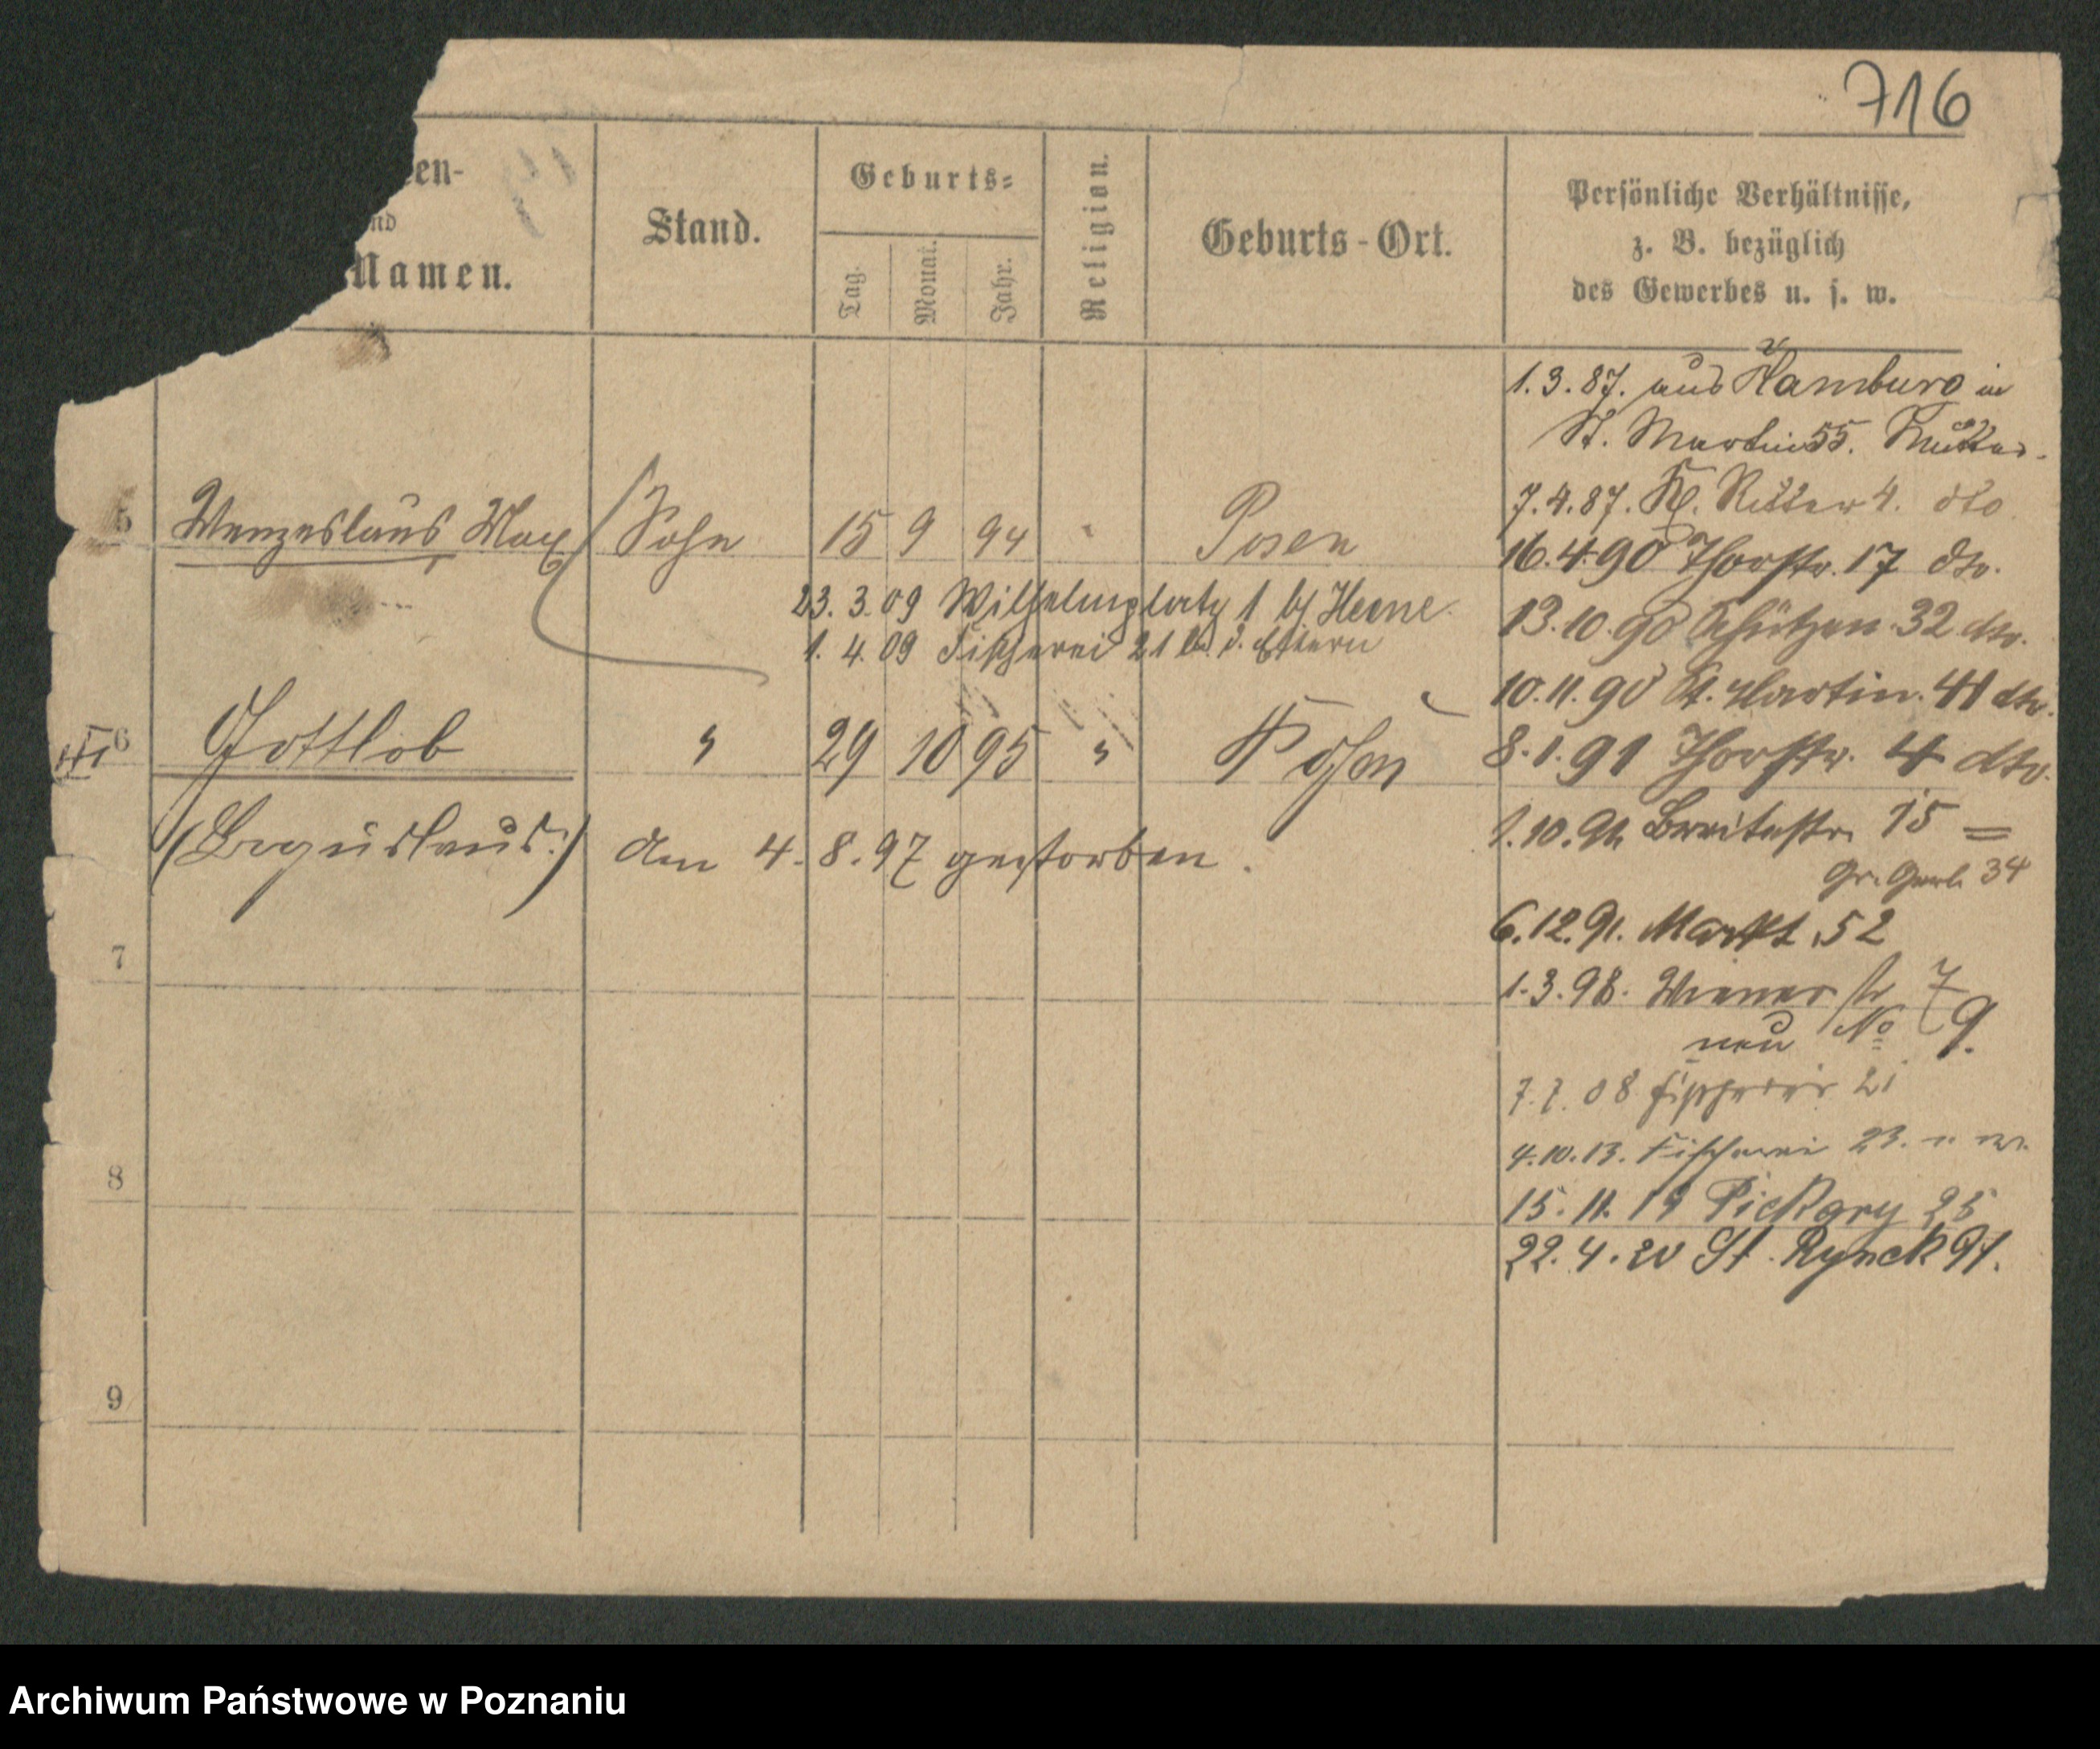 716
en-
nd
Namen.
Stand.
Geburts-
Tag.
Monat.
Jahr.
Religion.
Geburts-Ort.
Persönliche Verhältnisse,
z. B. bezüglich
des Gewerbes u. s. w.
1.3.87. aus Hamburg in
St. Martin 55.
7.4.87. Kl. Ritter 4. dto
16.4.90 Thorstr. 17 dto.
13.10.90 Schützen 32 dto.
10.11.90 St. Martin. 41 dto.
8.1.91 Thorstr. 4 dto.
1.10.91 Breitestr. 15 =
Gr. Gerb. 34
6.12.91. Markt 52
1.3.98. Wiener str 7
neu No 9.
7.7.08 Fischerei 21
4.10.13. Fischerei 23.
15.11.19 Piekary 25
22.4.20 St. Rynek 91.
5 Wenzeslaus Max Sohn 15 9 94 " Posen
23.3.09 Wilhelmplatz 1 b/ Heene.
1.4.09 Fischerei 21 b. d. Eltern
6 Gottlob " 29 10 95 " Posen
(Boguslaus.) am 4.8.97 gestorben.
7
8
9
Archiwum Państwowe w Poznaniu